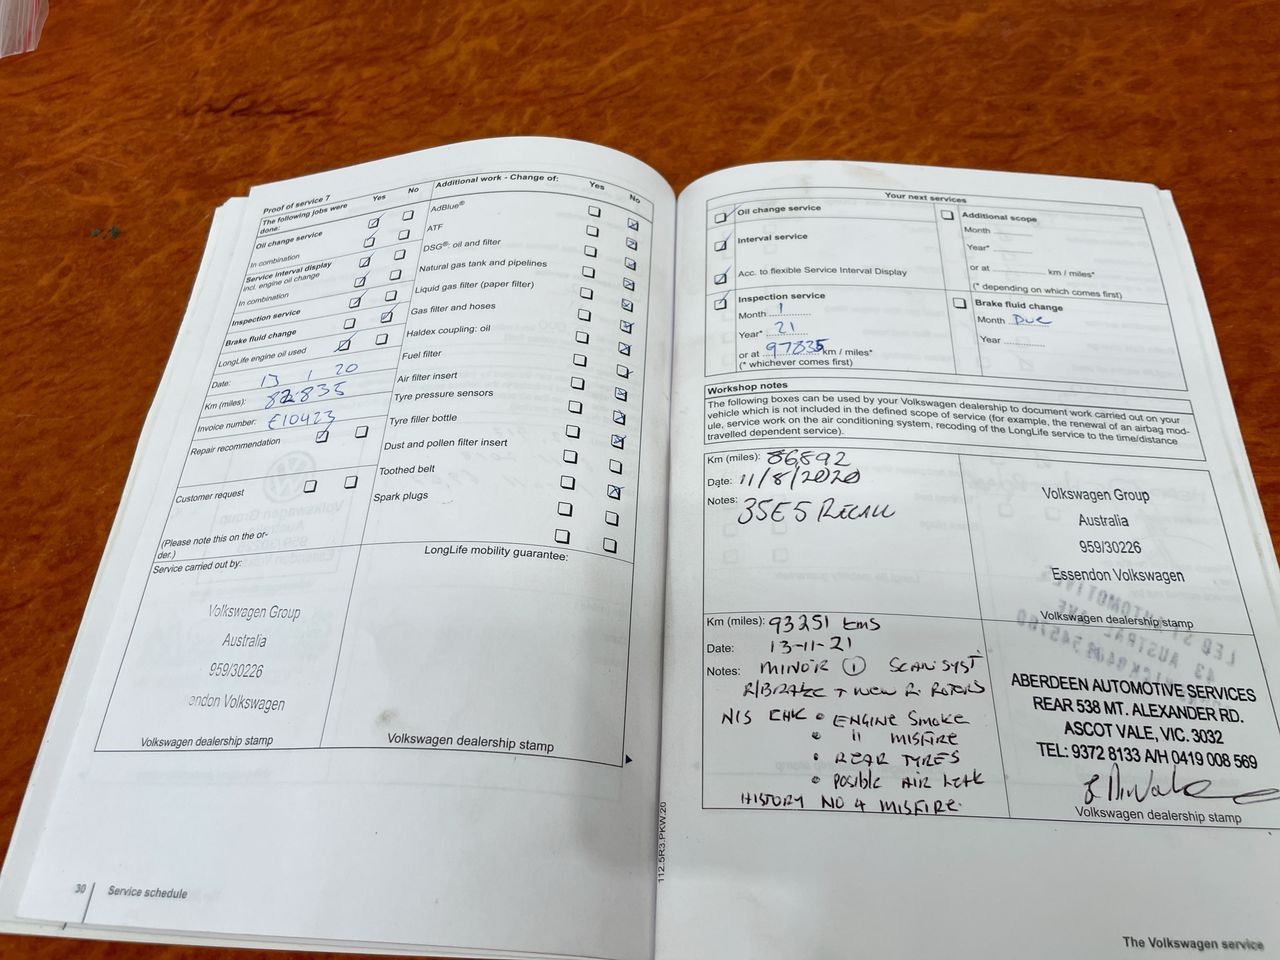 Proof of service 7
Yes
No
The following jobs were
done:
Oil change service
In combination
Service interval display
incl. engine oil change
In combination
Inspection service
Brake fluid change
LongLife engine oil used
Date: 13 1 20
Km (miles): 82835
Invoice number: E10423
Repair recommendation
Customer request
(Please note this on the or-
der.)
Additional work - Change of:
Yes
No
AdBlue®
ATF
DSG®: oil and filter
Natural gas tank and pipelines
Liquid gas filter (paper filter)
Gas filter and hoses
Haldex coupling: oil
Fuel filter
Air filter insert
Tyre pressure sensors
Tyre filler bottle
Dust and pollen filter insert
Toothed belt
Spark plugs
Service carried out by:
Volkswagen Group
Australia
959/30226
Essendon Volkswagen
Volkswagen dealership stamp
LongLife mobility guarantee:
Volkswagen dealership stamp
30
Service schedule
Your next services
Oil change service
Interval service
Acc. to flexible Service Interval Display
Inspection service
Month 1
Year* 21
or at 97835 km / miles*
(* whichever comes first)
Additional scope
Month
Year*
or at km / miles*
(* depending on which comes first)
Brake fluid change
Month Due
Year
Workshop notes
The following boxes can be used by your Volkswagen dealership to document work carried out on your
vehicle which is not included in the defined scope of service (for example, the renewal of an airbag mod-
ule, service work on the air conditioning system, recoding of the LongLife service to the time/distance
travelled dependent service).
Km (miles): 86892
Date: 11/8/2020
Notes: 35E5 RECALL
Volkswagen Group
Australia
959/30226
Essendon Volkswagen
Volkswagen dealership stamp
Km (miles): 93251 kms
Date: 13-11-21
Notes: MINOR ① SCAN SYST
R/BRAKE + NEW R. ROTORS
N/S CHK • ENGINE SMOKE
• " MISFIRE
• REAR TYRES
• POSIBLE AIR LEAK
HISTORY NO 4 MISFIRE.
ABERDEEN AUTOMOTIVE SERVICES
REAR 538 MT. ALEXANDER RD.
ASCOT VALE, VIC. 3032
TEL: 9372 8133 A/H 0419 008 569
Volkswagen dealership stamp
112.5R3.PKW.20
The Volkswagen service